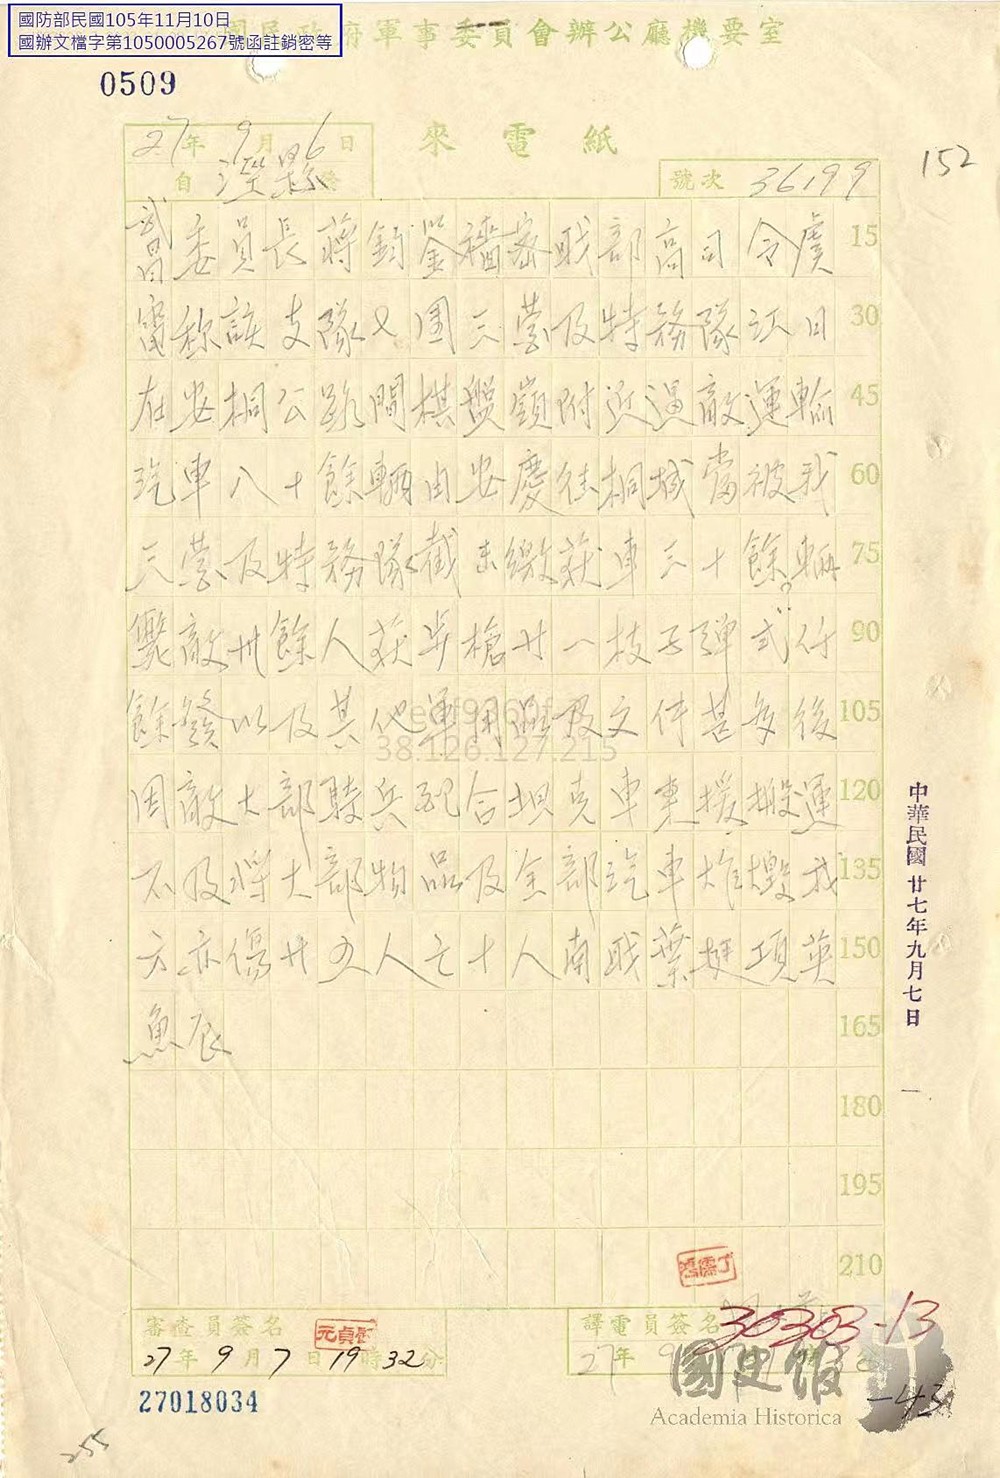 國防部民國105年11月10日
國辦文檔字第1050005267號函註銷密等
府軍事委員會辦公廳機要室
0509
來電紙
27年9月6日
自涇縣
號次 36199
152
武昌委員長蔣鈞鑒密職部高司令虞 15
電称該支隊又團三營及特務隊江日 30
在安桐公路間棋盤嶺附近逼敵運輸 45
汽車八十餘輛由安慶往桐城當被我 60
三營及特務隊截击繳获車三十餘輛 75
斃敵卅餘人获步槍廿一枝子彈弍仟 90
餘發以及其他軍用品及文件甚多後 105
因敵大部騎兵配合坦克車東援搬運 120
不及將大部物品及全部汽車堆燬我 135
方亦傷廿五人亡十人南職葉挺項英 150
魚辰 165
180
195
210
38.126.127.215
中華民國廿七年九月七日
一
審查員簽名
27年9月7日19時32分
譯電員簽名
27年
30303-13
-43
27018034
國史館
Academia Historica
255